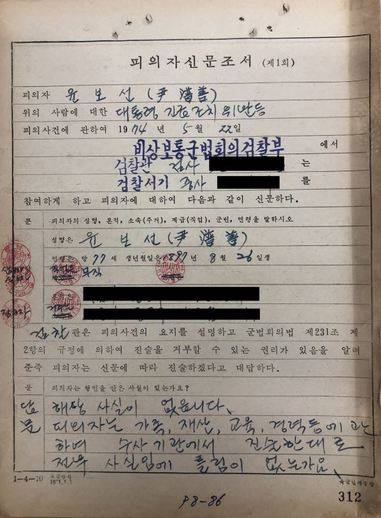 피의자신문조서 (제1회)
피의자 윤보선 (尹潽善)
위의 사람에 대한 대통령 긴급조치 위반 등
피의사건에 관하여 1974년 5월 22일
비상보통군법회의검찰부 에서
검찰관 검사 는
검찰서기 를
참여하게 하고 피의자에 대하여 다음과 같이 신문하다.
문 피의자의 성명, 본적, 주소(주거), 계급(직업), 군번, 연령을 말하시오
성명은 윤보선 (尹潽善)
만 77세 생년월일은 1897년 8월 26일생
검찰관은 피의사건의 요지를 설명하고 군법회의법 제231조 제
2항의 규정에 의하여 진술을 거부할 수 있는 권리가 있음을 알려
준즉 피의자는 신문에 따라 진술하겠다고 대답하다.
문 피의자는 형벌을 받은 사실이 있는가요?
답 해당 사실이 없읍니다.
문 피의자는 가족, 재산, 교육, 경력등에 관
하여 수사기관에서 진술한대로
전부 사실임에 틀림이 없는가요
1-4-20
98-86
312